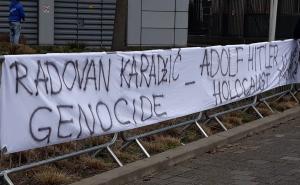 RADOVAN KARADŽIĆ — ADOLF HITLER
GENOCIDE HOLOCAUST